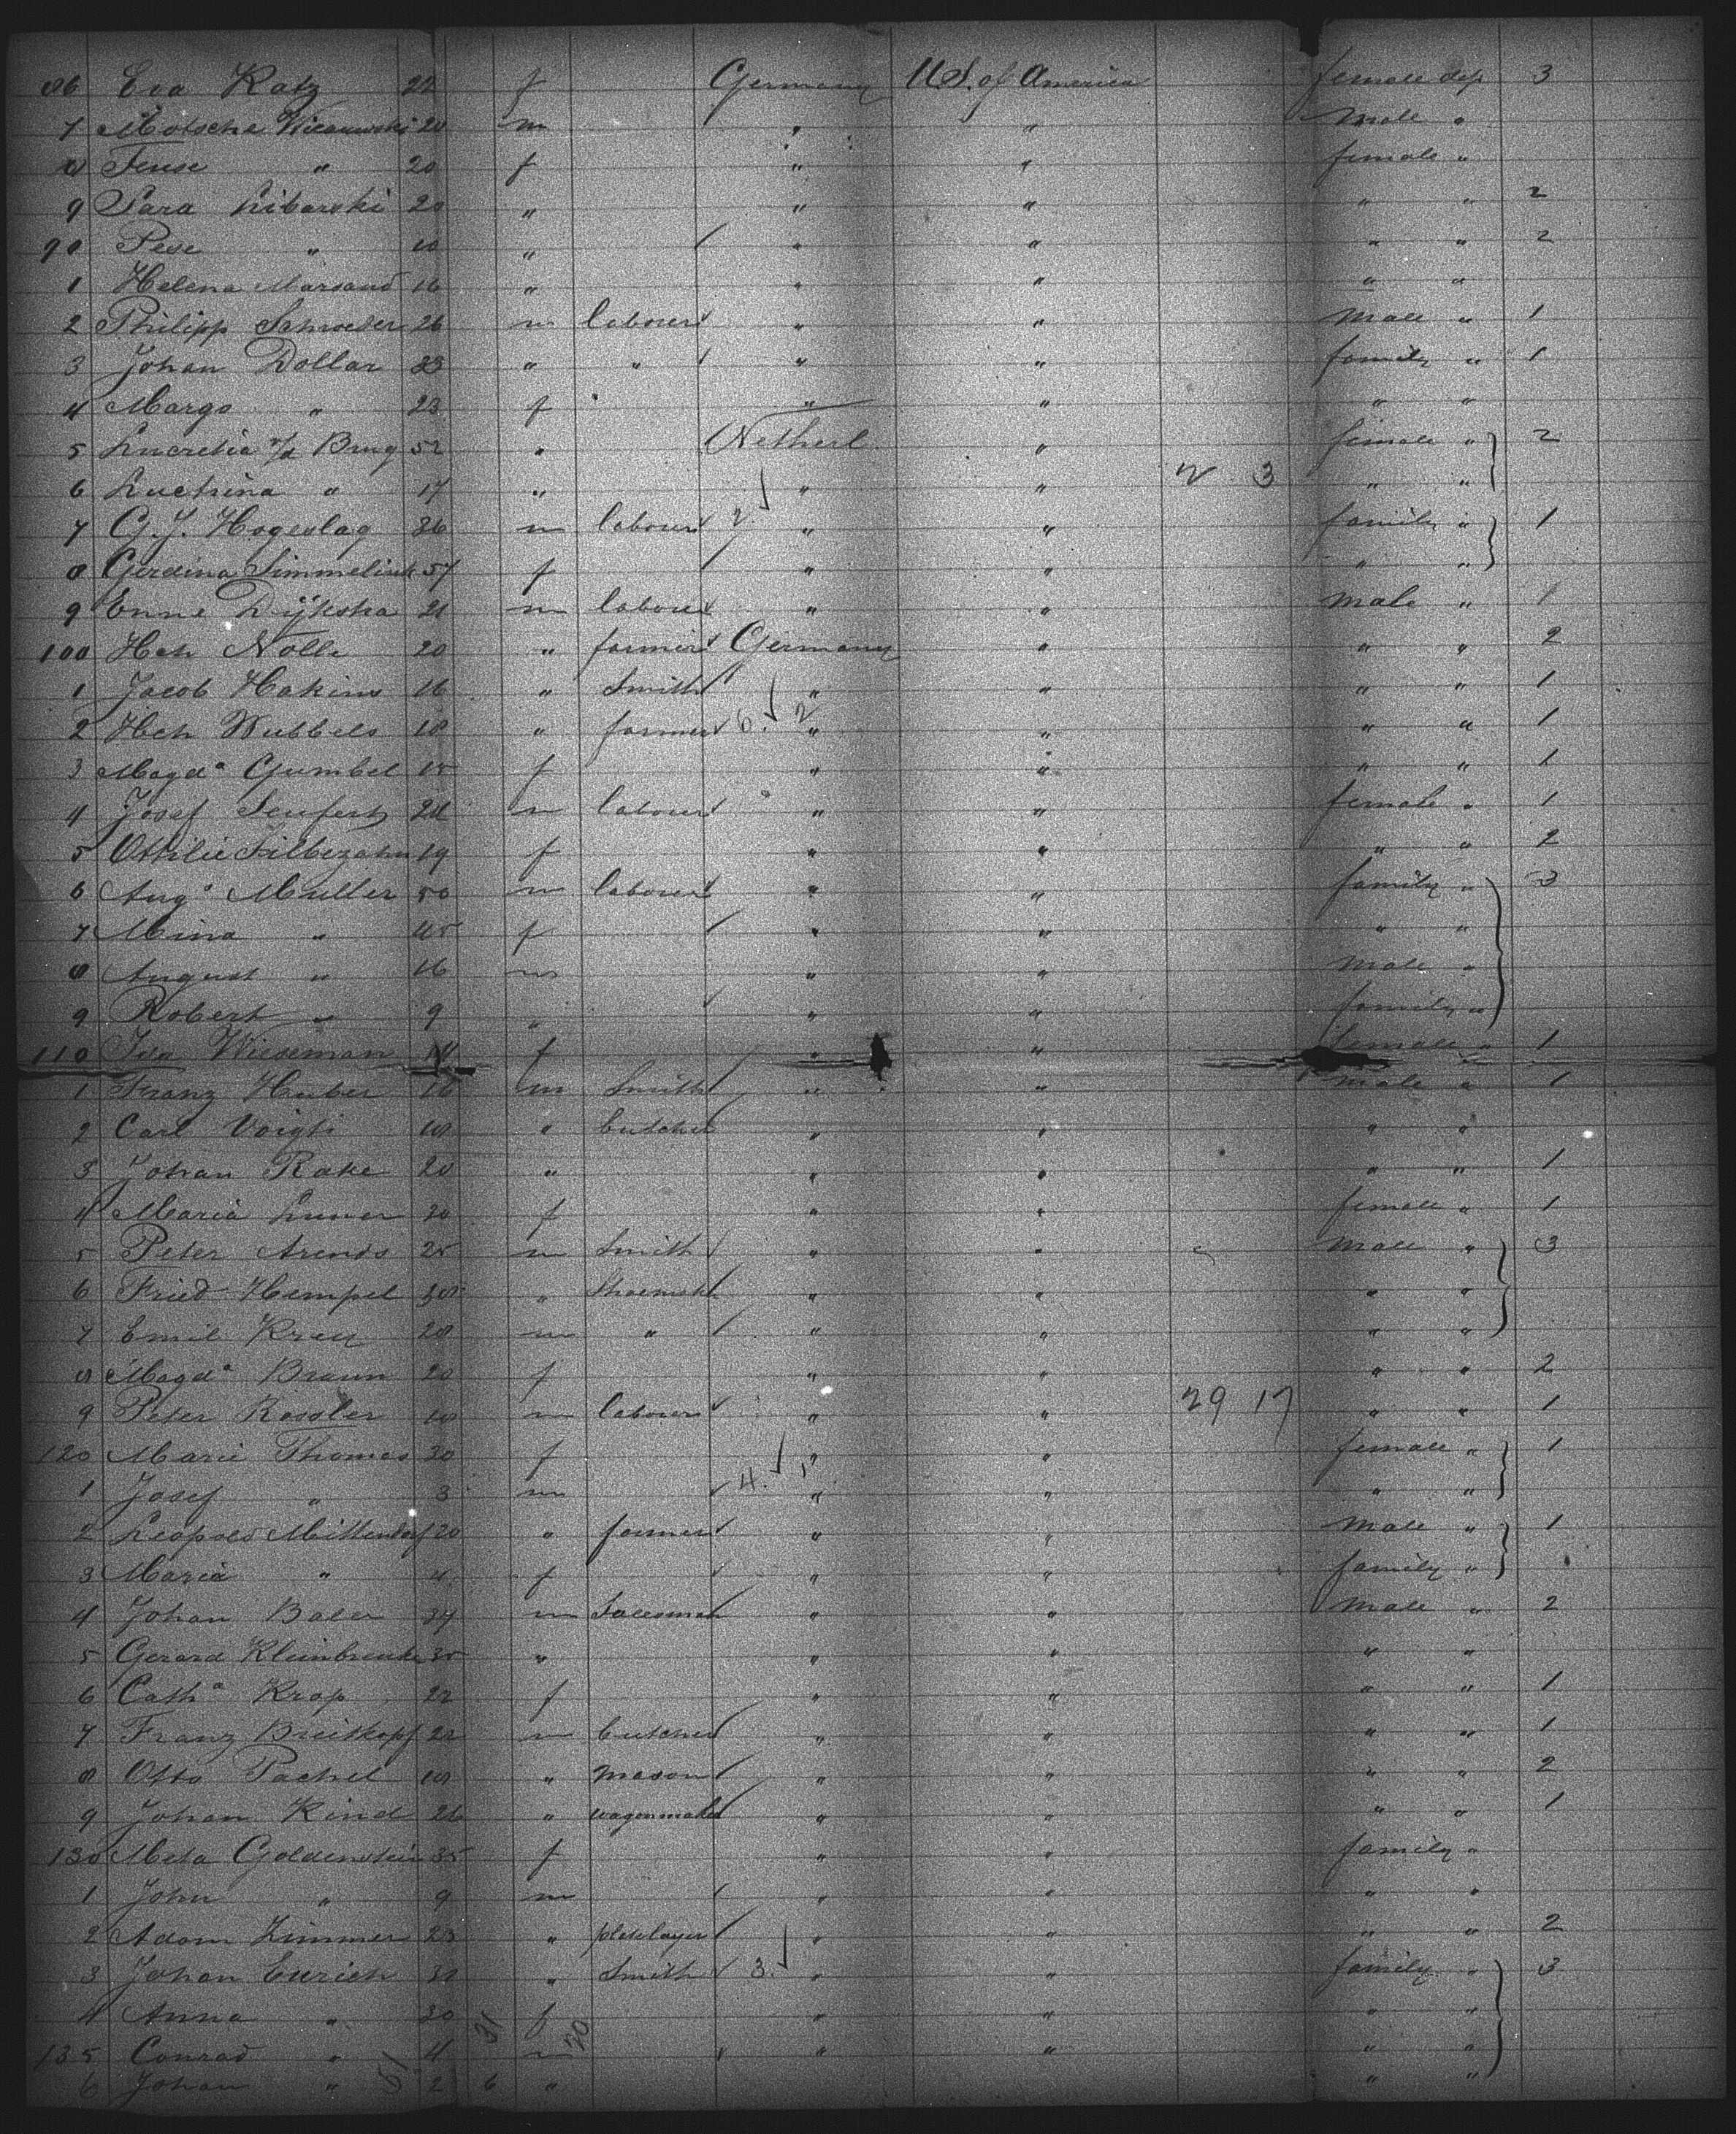 86 Eva Katz 22 f Germany U.S. of America female dep 3
7 Motsche 20 m " " Male "
8 " 20 f " " female "
9 Sara Libarski 20 " " " " " 2
90 Pese " 10 " " " " " 2
1 Helena Marsand 16 " " " " "
2 Philipp Schroeder 26 m labourer " " Male " 1
3 Johan Dollar 23 " " " " family " 1
4 Margo " 23 f " " " "
5 Lucretia v/d Brug 52 " Netherl " female " 2
6 Luchina " 17 " " " 2 3 " "
7 G. J. Hogeslag 36 m labourer 2 " " family " 1
8 Gerdina Simmelink 57 f " " " "
9 Enne Dijkstra 21 m labourer " " Male " 1
100 Hch Nolle 20 " farmer Germany " " " 2
1 Jacob Hakins 16 " Smith " " " " 1
2 Hch Wubbels 18 " farmer 6. 2 " " " " 1
3 Magda Gumbel 15 f " " " " 1
4 Josef Seufert m labourer " " female " 1
5 Ottilie Silbezahn 19 f " " " " 2
6 Aug. Muller 50 m labourer " " family " 3
7 Mina " 45 f " " " "
8 August " 16 m " " Male "
9 Robert " 9 " " " family "
110 Ida Wieseman f " " female " 1
1 Franz Huber 16 m Smith " " male " 1
2 Carl Voigt 18 " butcher " " " "
3 Johan Rake 20 " " " " " 1
4 Maria 20 f " " female " 1
5 Peter Arends 25 m Smith " " Male " 3
6 Fried Hempel " Shoemak " " " "
7 Emil 28 m " " " " "
8 Magda Braun 20 f " " " " 2
9 Peter Kessler 18 m labourer " " 29 17 " " 1
120 Marie Thomas 30 f " " female " 1
1 Josef " 3 m 4. 1 " " " "
2 Leopold Mittendorf 20 " farmer " " Male " 1
3 Maria " 4 f " " family "
4 Johan Baler 34 m Salesman " " Male " 2
5 Gerard 35 " " " " "
6 Catha Krap 22 f " " " " 1
7 Franz Breitkopf 22 m butcher " " " " 1
8 Otto Pachel 18 " mason " " " " 2
9 Johan Kind 26 " wagonmaker " " " " 1
130 Meta Goldenstein 35 f " " family "
1 John " 9 m " " " "
2 Adam Zimmer 23 " platelayer " " " " 2
3 Johan Eurich 31 " Smith 3. " " family " 3
4 Anna " 30 f " " " "
135 Conrad " 4 m " " " "
6 Johan " 51 2 6 " " "
31 20